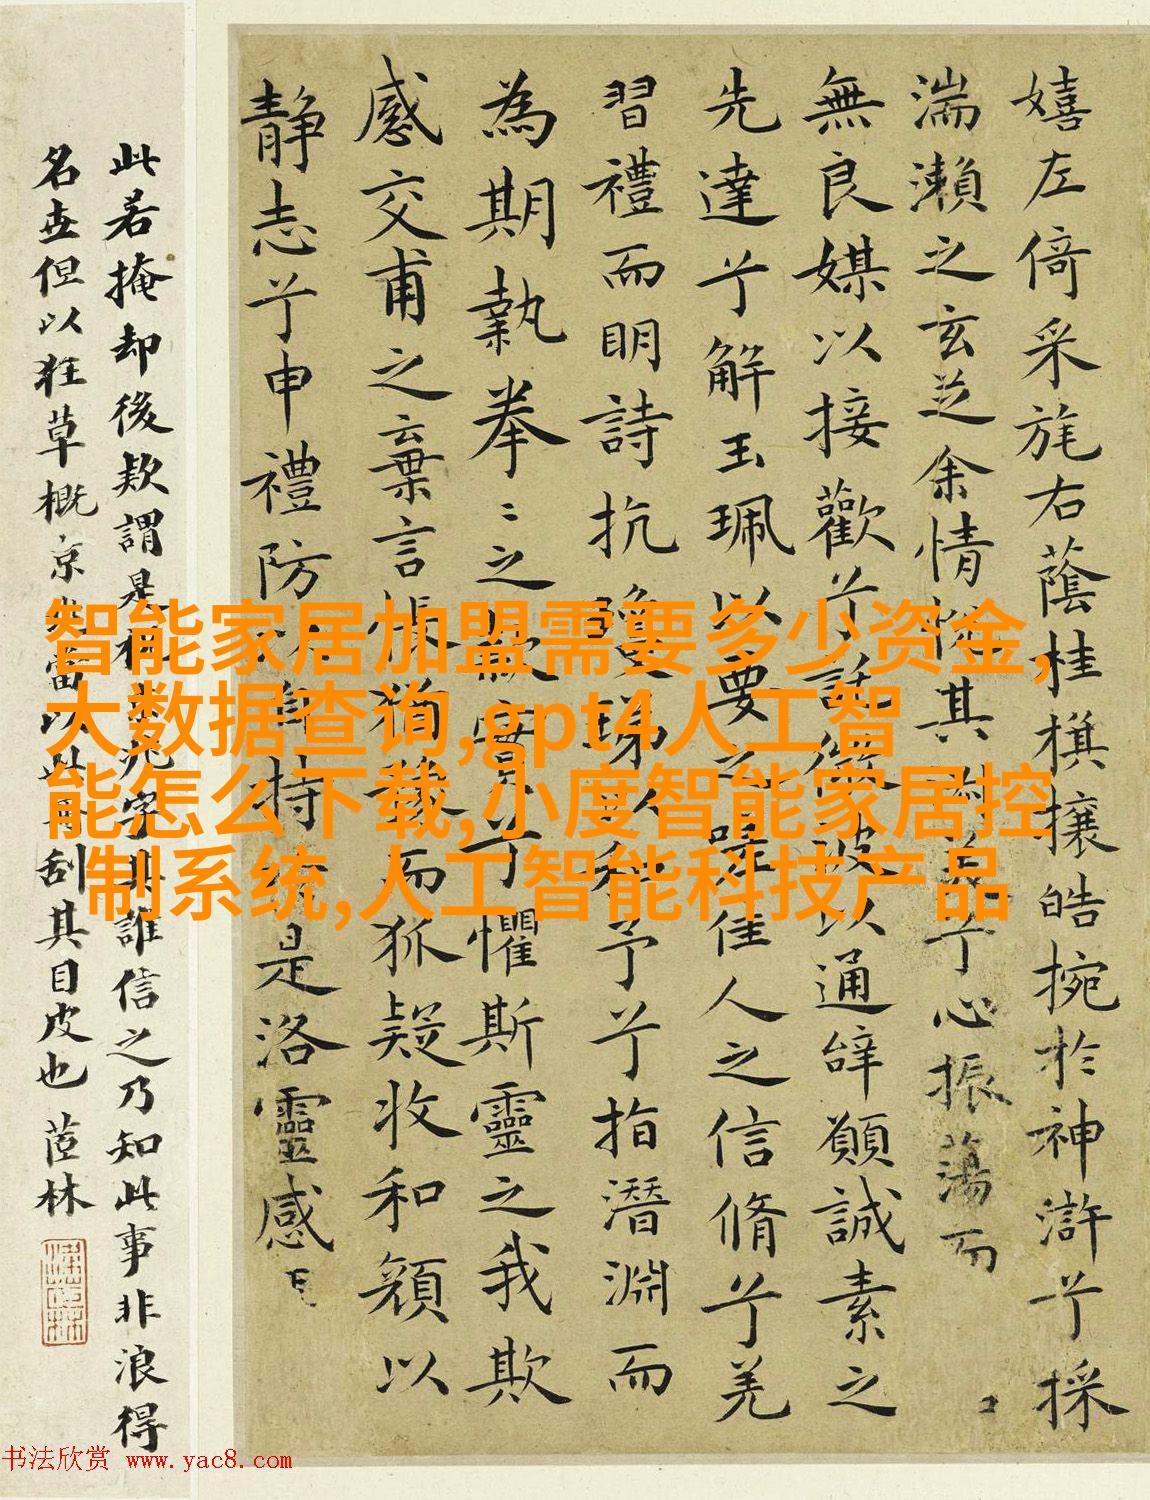 嬉左倚采旄右蔭桂旗攘皓捥於神滸兮採
湍瀨之玄芝余情悅其淑美兮心振蕩而
無良媒以接歡兮託微波以通辭願誠素之
先達兮解玉珮以要之嗟佳人之信脩兮羌
習禮而明詩抗瓊珶以和予兮兮指潛淵而
為期執拳〻之款實兮懼斯靈之我欺
感交甫之棄言悵猶豫而狐疑收和顏以
靜志兮申禮防以自持於是洛靈感
此若掩却後款謂是楊兆字其誰信之乃知此事非浪得
名世但以狂草概京兆當以此冊刮其目皮也 茝林
智能家居加盟需要多少资金,
大数据查询,gpt4人工智
能怎么下载,小度智能家居控
制系统,人工智能科技产品
书法欣赏 www.yac8.com